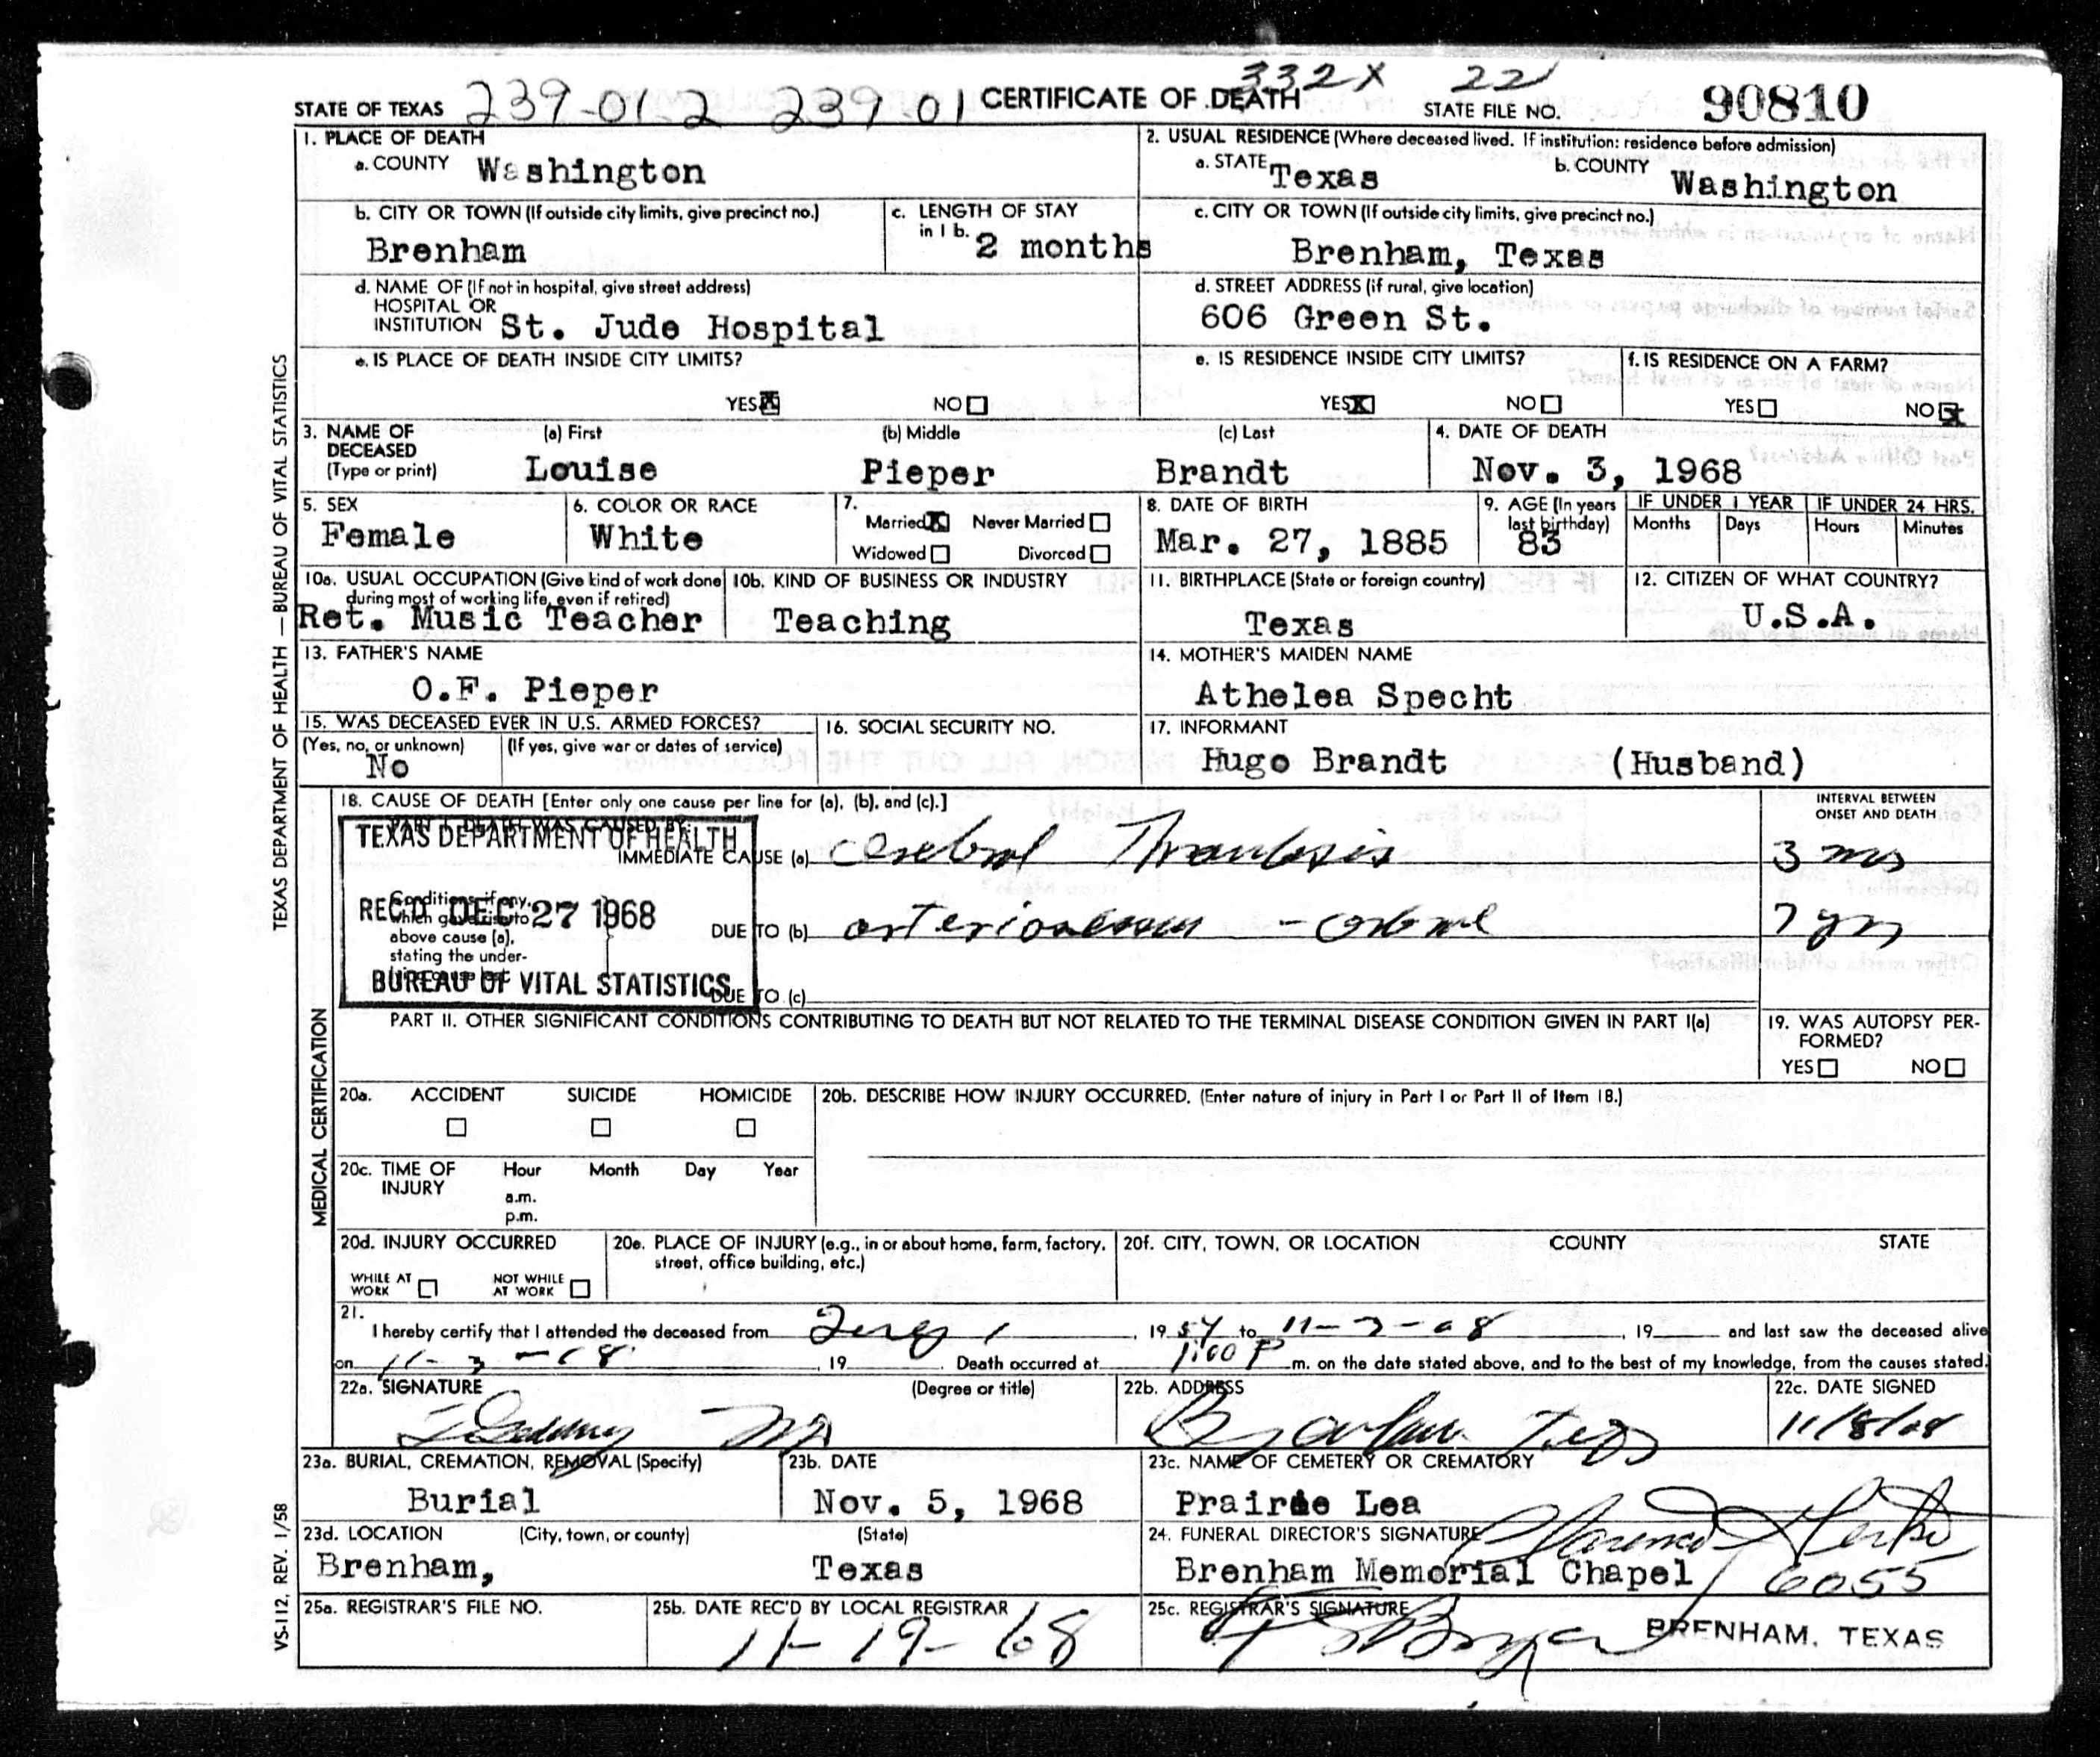 STATE OF TEXAS 239-01 2 239 01 CERTIFICATE OF DEATH 332X 22 STATE FILE NO. 90810
TEXAS DEPARTMENT OF HEALTH — BUREAU OF VITAL STATISTICS
1. PLACE OF DEATH
a. COUNTY Washington
2. USUAL RESIDENCE (Where deceased lived. If institution: residence before admission)
a. STATE Texas b. COUNTY Washington
b. CITY OR TOWN (If outside city limits, give precinct no.)
Brenham
c. LENGTH OF STAY
in 1 b. 2 months
c. CITY OR TOWN (If outside city limits, give precinct no.)
Brenham, Texas
d. NAME OF (If not in hospital, give street address)
HOSPITAL OR
INSTITUTION St. Jude Hospital
d. STREET ADDRESS (if rural, give location)
606 Green St.
e. IS PLACE OF DEATH INSIDE CITY LIMITS?
YES X NO
e. IS RESIDENCE INSIDE CITY LIMITS?
YES X NO
f. IS RESIDENCE ON A FARM?
YES NO X
3. NAME OF
DECEASED
(Type or print)
(a) First (b) Middle (c) Last
Louise Pieper Brandt
4. DATE OF DEATH
Nov. 3, 1968
5. SEX
Female
6. COLOR OR RACE
White
7.
Married X Never Married
Widowed Divorced
8. DATE OF BIRTH
Mar. 27, 1885
9. AGE (In years
last birthday)
83
IF UNDER 1 YEAR IF UNDER 24 HRS.
Months Days Hours Minutes
10a. USUAL OCCUPATION (Give kind of work done
during most of working life, even if retired)
Ret. Music Teacher
10b. KIND OF BUSINESS OR INDUSTRY
Teaching
11. BIRTHPLACE (State or foreign country)
Texas
12. CITIZEN OF WHAT COUNTRY?
U.S.A.
13. FATHER'S NAME
O.F. Pieper
14. MOTHER'S MAIDEN NAME
Athelea Specht
15. WAS DECEASED EVER IN U.S. ARMED FORCES?
(Yes, no, or unknown) (If yes, give war or dates of service)
No
16. SOCIAL SECURITY NO.
17. INFORMANT
Hugo Brandt (Husband)
MEDICAL CERTIFICATION
18. CAUSE OF DEATH [Enter only one cause per line for (a), (b), and (c).]
INTERVAL BETWEEN
ONSET AND DEATH
PART I. DEATH WAS CAUSED BY:
TEXAS DEPARTMENT OF HEALTH
IMMEDIATE CAUSE (a) Cerebral Thrombosis 3 mos
Conditions, if any,
which gave rise to
above cause (a),
stating the under-
lying cause last
REC'D DEC 27 1968
BUREAU OF VITAL STATISTICS
DUE TO (b) 7 yrs
DUE TO (c)
PART II. OTHER SIGNIFICANT CONDITIONS CONTRIBUTING TO DEATH BUT NOT RELATED TO THE TERMINAL DISEASE CONDITION GIVEN IN PART I(a)
19. WAS AUTOPSY PER-
FORMED?
YES NO
20a. ACCIDENT SUICIDE HOMICIDE
20b. DESCRIBE HOW INJURY OCCURRED. (Enter nature of injury in Part I or Part II of Item 18.)
20c. TIME OF
INJURY
Hour Month Day Year
a.m.
p.m.
20d. INJURY OCCURRED
WHILE AT
WORK
NOT WHILE
AT WORK
20e. PLACE OF INJURY (e.g., in or about home, farm, factory,
street, office building, etc.)
20f. CITY, TOWN, OR LOCATION COUNTY STATE
21.
I hereby certify that I attended the deceased from , 19 to 11-3-68 , 19 and last saw the deceased alive
on 11-3-68 , 19 . Death occurred at 1:00 P m. on the date stated above, and to the best of my knowledge, from the causes stated.
22a. SIGNATURE (Degree or title)
MD
22b. ADDRESS
Brenham Texas
22c. DATE SIGNED
11/8/68
23a. BURIAL, CREMATION, REMOVAL (Specify)
Burial
23b. DATE
Nov. 5, 1968
23c. NAME OF CEMETERY OR CREMATORY
Prairie Lea
23d. LOCATION (City, town, or county) (State)
Brenham, Texas
24. FUNERAL DIRECTOR'S SIGNATURE
Brenham Memorial Chapel 6055
25a. REGISTRAR'S FILE NO.
25b. DATE REC'D BY LOCAL REGISTRAR
11-19-68
25c. REGISTRAR'S SIGNATURE
BRENHAM, TEXAS
VS-112, REV. 1/58